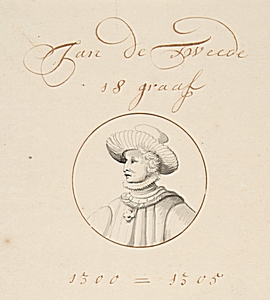 Jan de Tweede
18 graaf
1300 = 1305